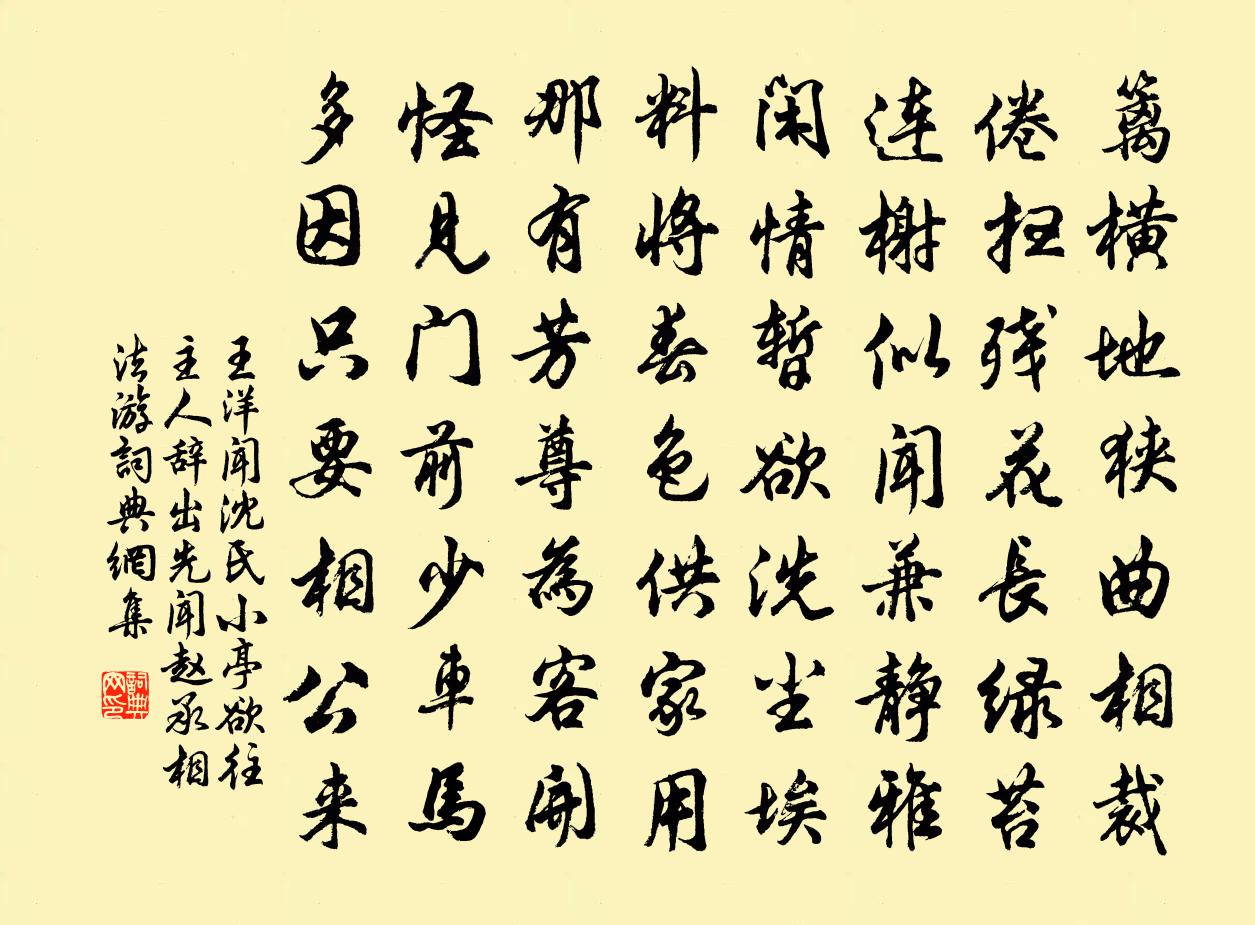 篱横地狭曲相裁
倦扫残花长绿苔
连榭似闻兼静雅
闲情暂欲洗尘埃
料将春色供家用
那有芳尊为客开
怪见门前少車馬
多因只要相公来
王洋闻沈氏小亭欲往
主人辞出先闻赵丞相
法游詞典網集
詞典网印